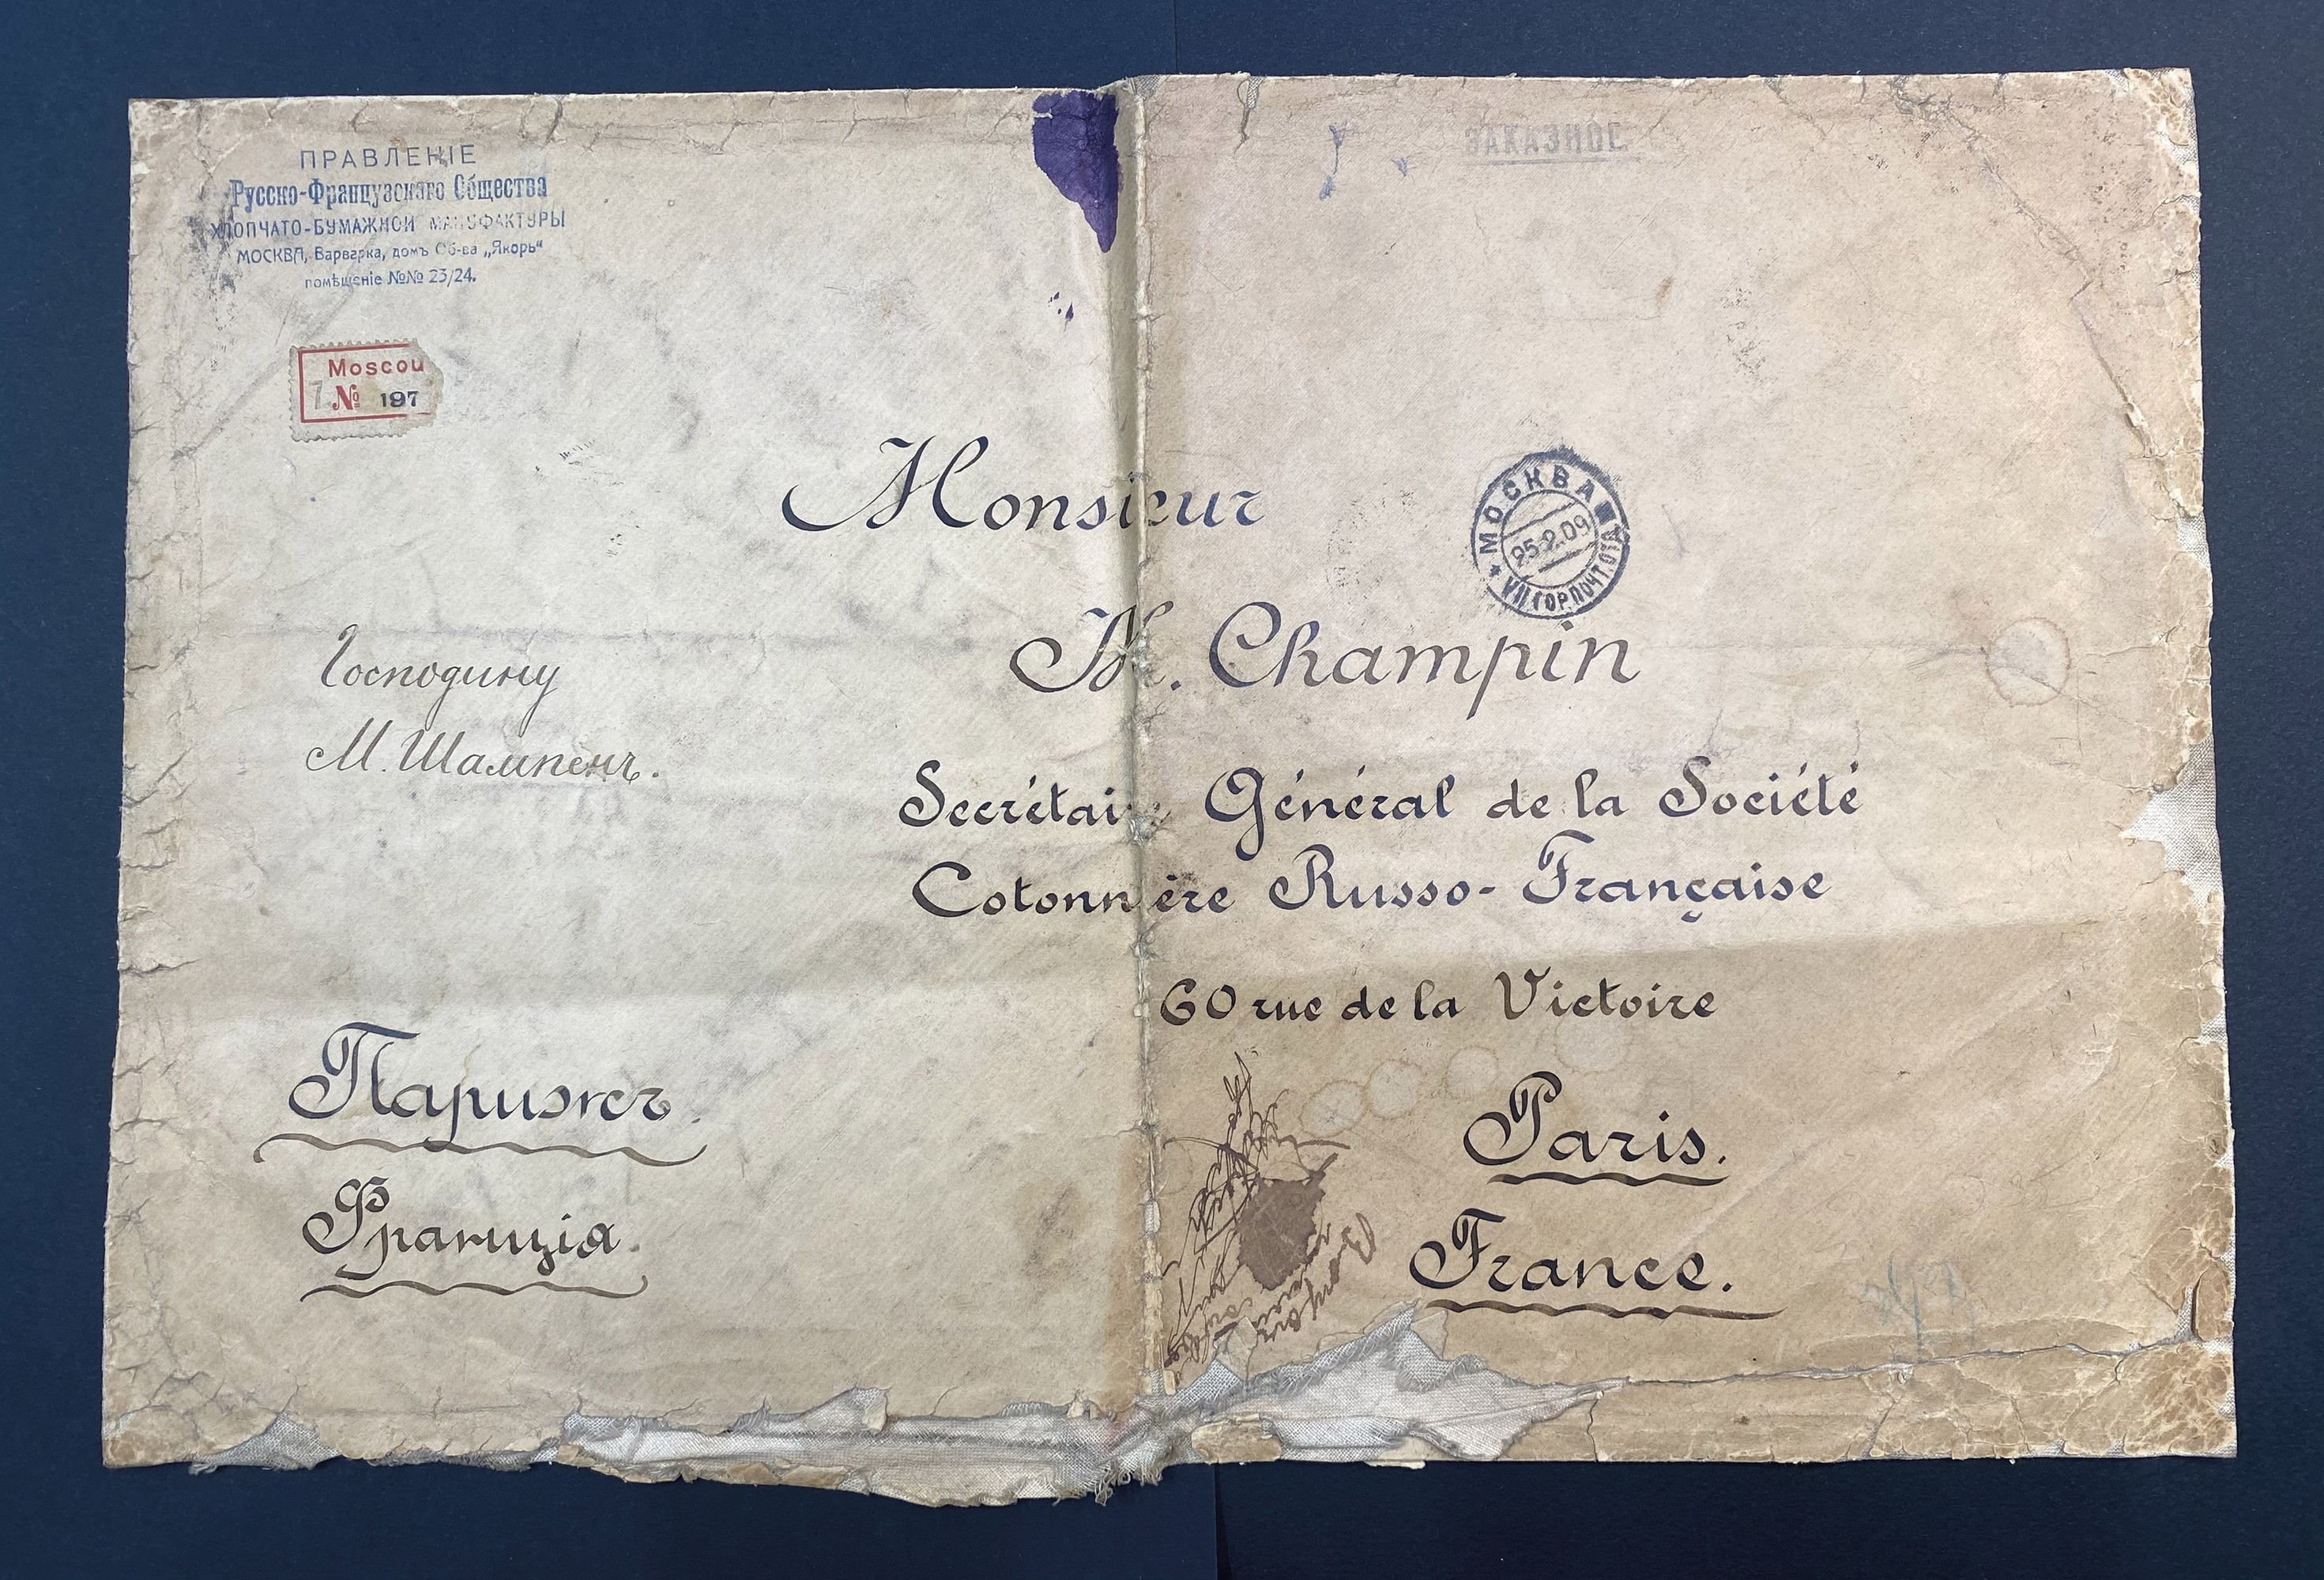 ПРАВЛЕНІЕ
Русско-Французскаго Общества
ХЛОПЧАТО-БУМАЖНОЙ МАНУФАКТУРЫ
МОСКВА, Варварка, домъ Об-ва „Якорь“
помѣщеніе №№ 23/24.
ЗАКАЗНОЕ.
Moscou
№ 197
МОСКВА
25.2.09
VII ГОР.ПОЧТ.ОТД.
Monsieur
M. Champin
Secrétaire Général de la Société
Cotonnière Russo-Française
60 rue de la Victoire
Paris.
France.
Господину
М. Шампенъ.
Парижъ.
Франція.